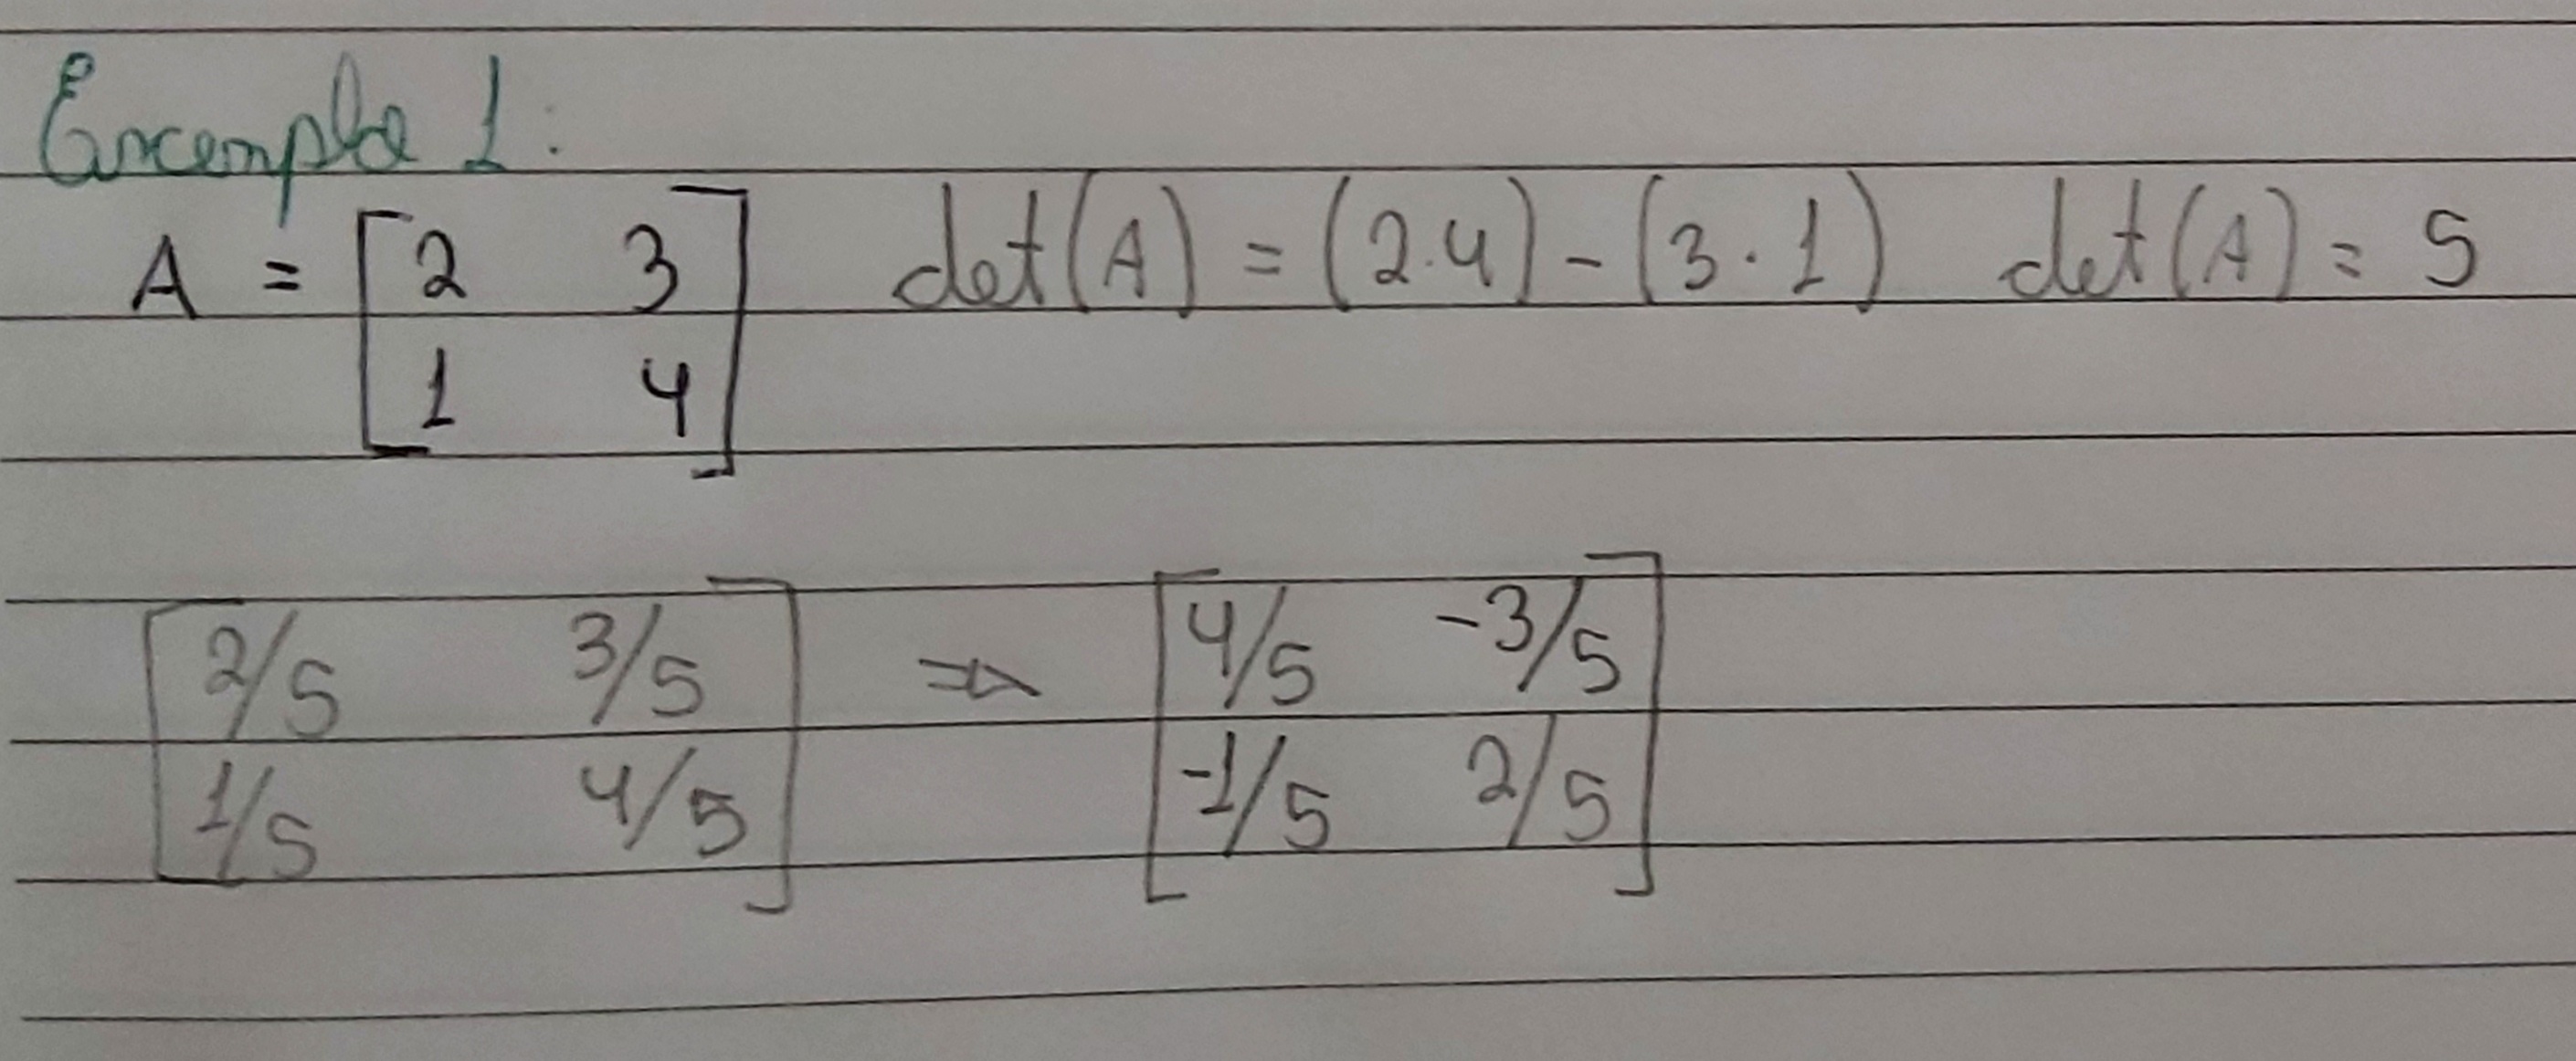 Exemplo 1:
A = [2 3] det(A) = (2.4) - (3.1) det(A) = 5
[1 4]
[2/5 3/5] ⇒ [4/5 -3/5]
[1/5 4/5] [-1/5 2/5]